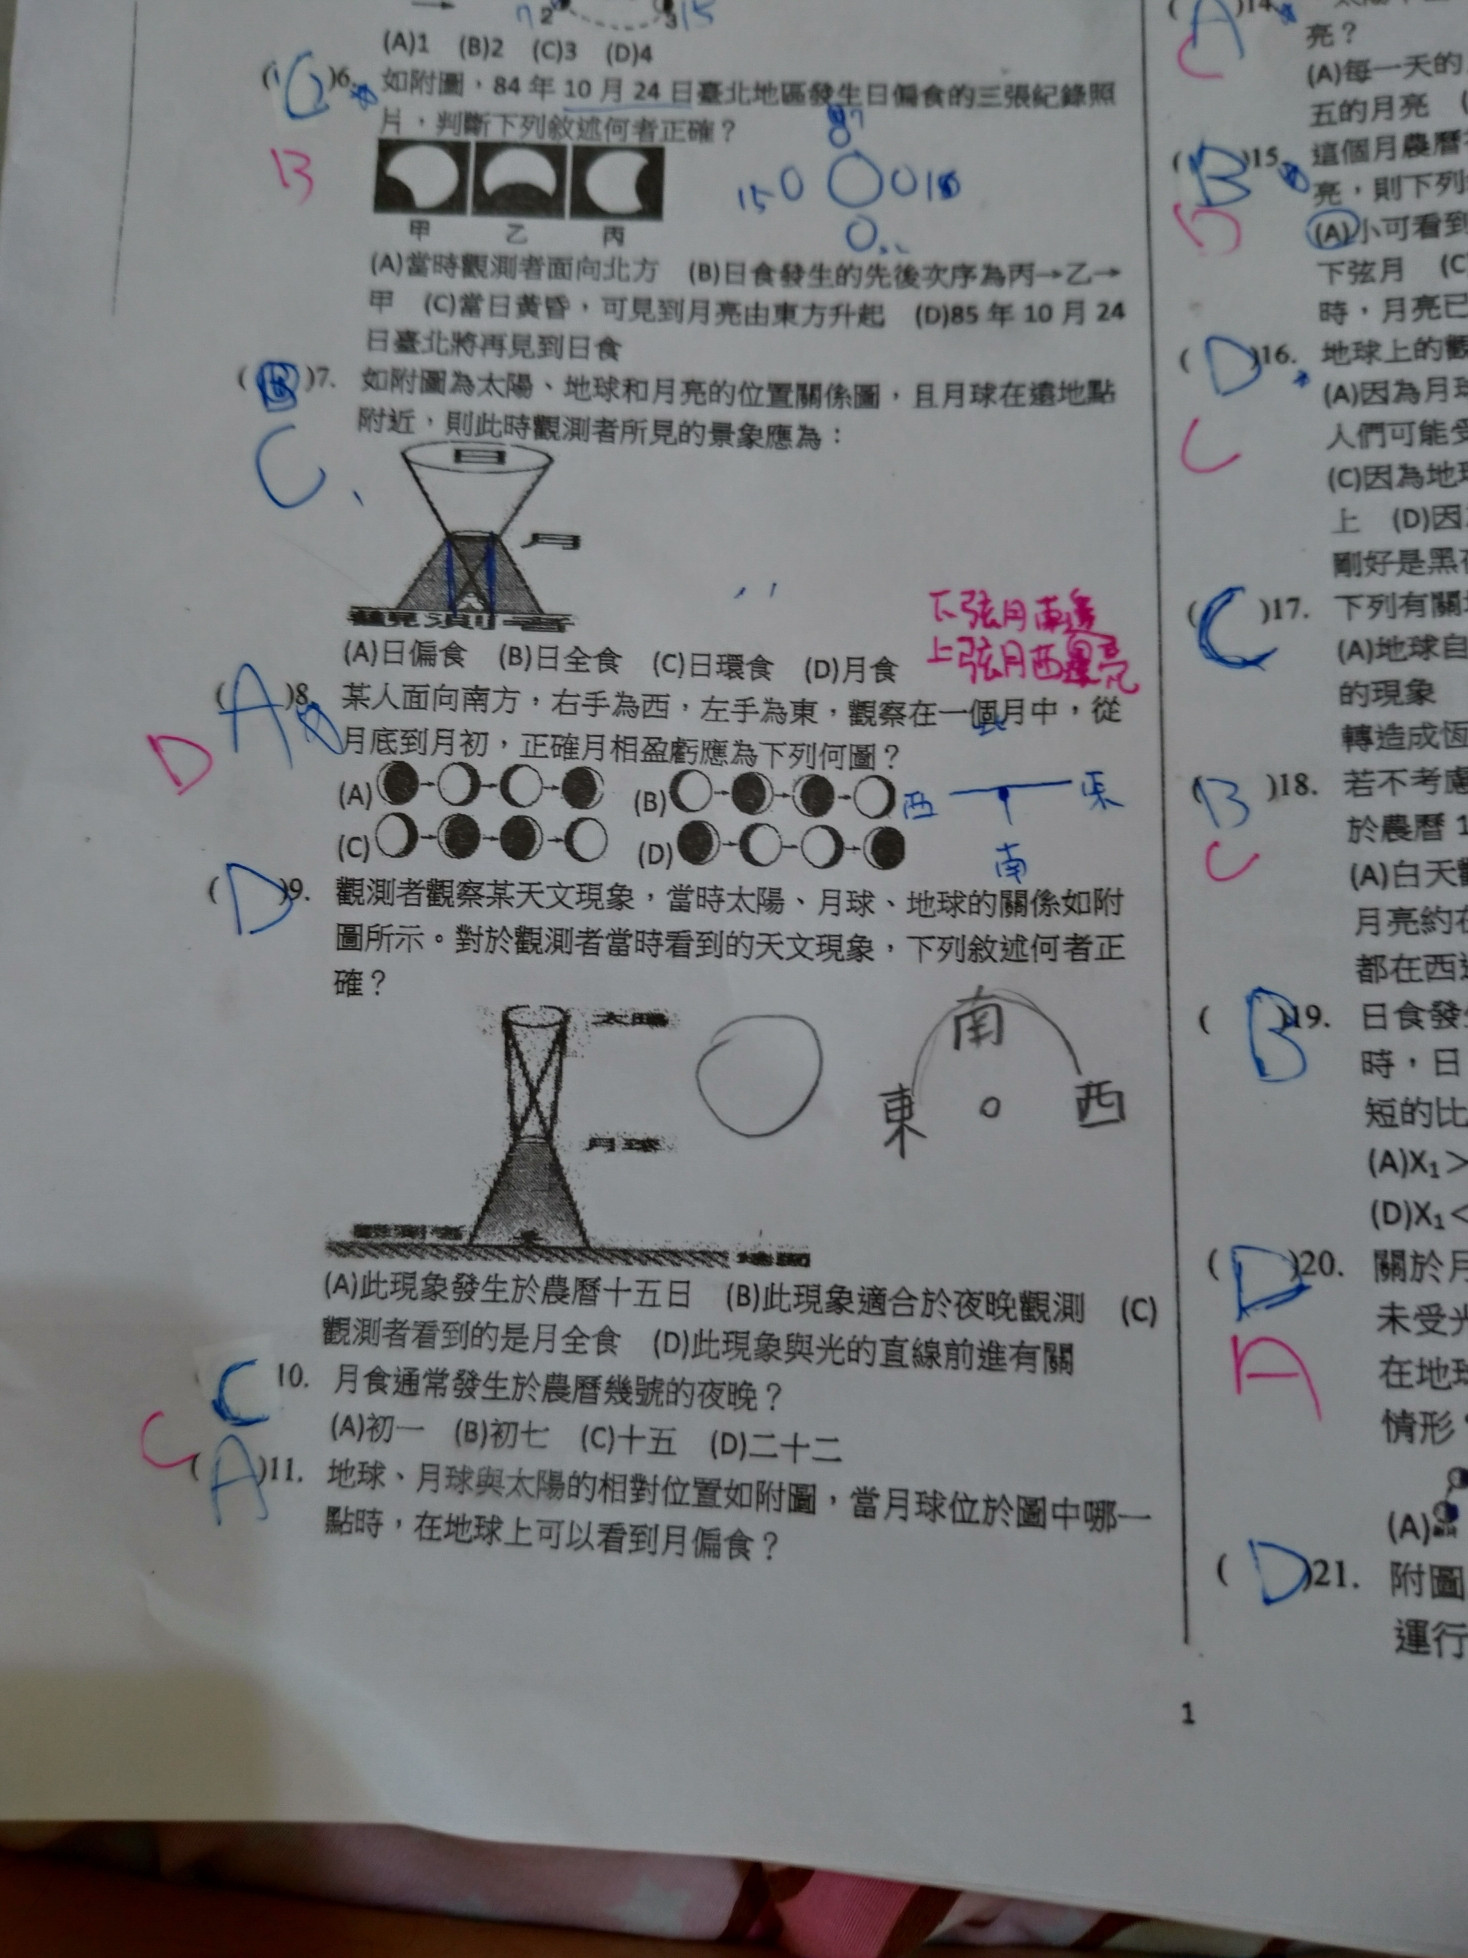 (A)1 (B)2 (C)3 (D)4
6. 如附圖，84 年 10 月 24 日臺北地區發生日偏食的三張紀錄照
片，判斷下列敘述何者正確？
B
15 
甲 乙 丙
(A)當時觀測者面向北方 (B)日食發生的先後次序為丙→乙→
甲 (C)當日黃昏，可見到月亮由東方升起 (D)85 年 10 月 24
日臺北將再見到日食
( B )7. 如附圖為太陽、地球和月亮的位置關係圖，且月球在遠地點
附近，則此時觀測者所見的景象應為：
C
日
月
觀測者
(A)日偏食 (B)日全食 (C)日環食 (D)月食
下弦月東邊
上弦月西邊亮
( A )8. 某人面向南方，右手為西，左手為東，觀察在一個月中，從
D
月底到月初，正確月相盈虧應為下列何圖？
(A) (B)
西 東
(C) (D)
南
( D )9. 觀測者觀察某天文現象，當時太陽、月球、地球的關係如附
圖所示。對於觀測者當時看到的天文現象，下列敘述何者正
確？
太陽
南
東 西
月球
觀測者
地面
(A)此現象發生於農曆十五日 (B)此現象適合於夜晚觀測 (C)
觀測者看到的是月全食 (D)此現象與光的直線前進有關
C 10. 月食通常發生於農曆幾號的夜晚？
(A)初一 (B)初七 (C)十五 (D)二十二
C
( A )11. 地球、月球與太陽的相對位置如附圖，當月球位於圖中哪一
點時，在地球上可以看到月偏食？
( A )14.
亮？
C
(A)每一天的
五的月亮
( B )15. 這個月農曆
亮，則下列
D
(A)小可看到
下弦月 (C
時，月亮已
( D )16. 地球上的觀
(A)因為月球
C
人們可能受
(C)因為地球
上 (D)因
剛好是黑夜
( C )17. 下列有關
(A)地球自
的現象
轉造成恆
B )18. 若不考慮
於農曆 1
C
(A)白天觀
月亮約在
都在西邊
( B )19. 日食發生
時，日
短的比
(A)X₁＞
(D)X₁＜
( D )20. 關於月
未受光
A
在地球
情形
(A)
( D )21. 附圖
運行
1